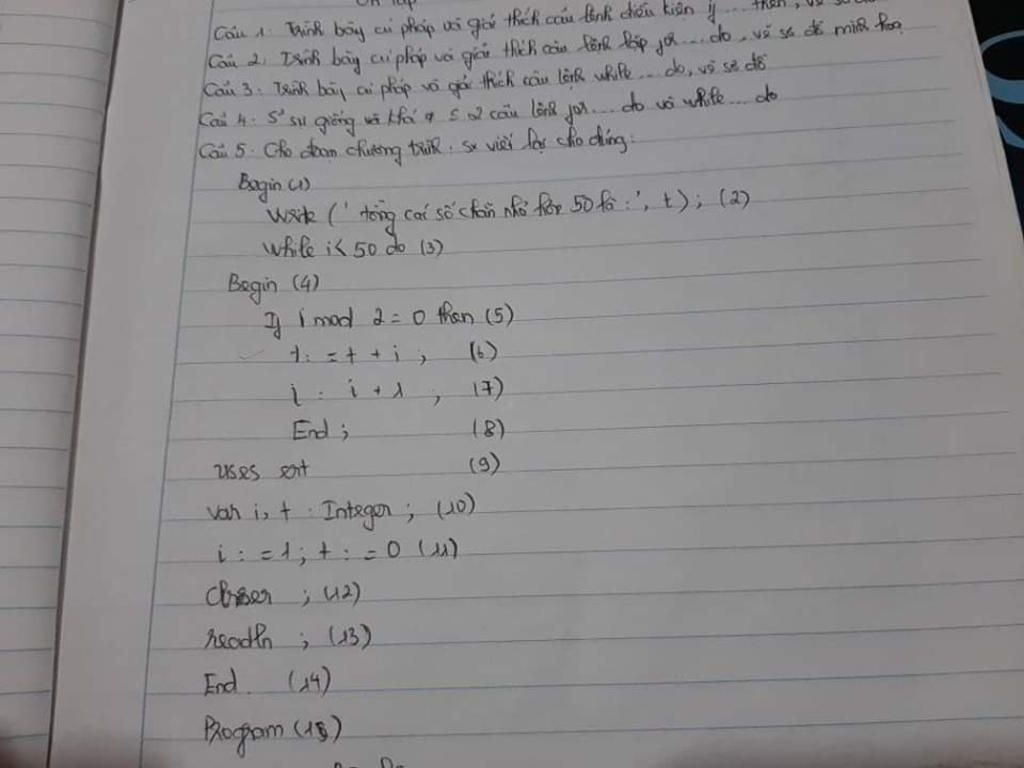 Ôn tập
Câu 1. Trình bày cú pháp và giải thích câu lệnh điều kiện if ... then, vẽ sơ đồ
Câu 2. Trình bày cú pháp và giải thích câu lệnh lặp for ... do, vẽ sơ đồ minh họa
Câu 3. Trình bày cú pháp và giải thích câu lệnh while ... do, vẽ sơ đồ
Câu 4. sự giống và khác 2 câu lệnh for ... do và while ... do
Câu 5. Cho đoạn chương trình. sx viết lại cho đúng:
Begin (1)
Write (' tổng các số chẵn nhỏ hơn 50 là :', t); (2)
While i< 50 do (3)
Begin (4)
If i mod 2 = 0 then (5)
t: = t + i ; (6)
i : i + 1 ; (7)
End ; (8)
uses crt (9)
var i, t : Integer ; (10)
i : = 1 ; t : = 0 (11)
; (12)
readln ; (13)
End. (14)
Program (15)